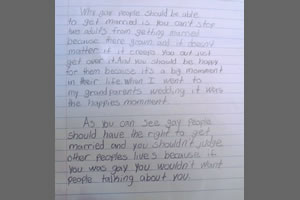 Why gay people should be able
to get married is you can't stop
two adults from getting married
because there grown and it doesn't
matter if it creeps you out just
get over it. And you should be happy
for them because it's a big momment
in their life when I went to
my grandparents wedding it was
the happies momment.
As you can see gay people
should have the right to get
married and you shouldn't judge
other peoples lives because if
you was gay you wouldn't want
people talking about you.